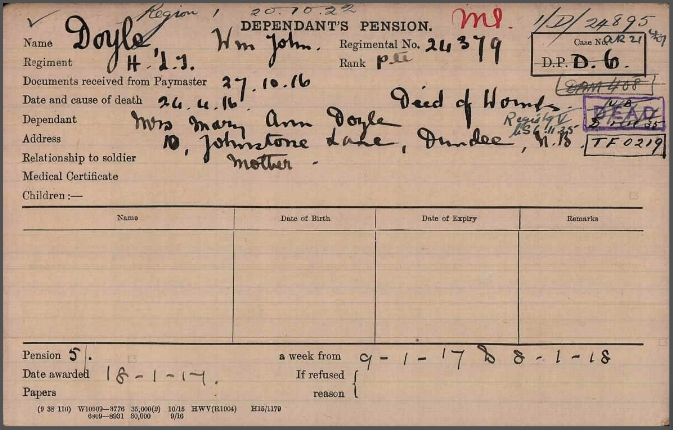 Region 1 20.10.22
DEPENDANT'S PENSION. MI. 1/D/24895
Name Doyle Wm John. Regimental No. 24379 Case No.
Regiment H.L.I. Rank Pte D.P. D. 6.
Documents received from Paymaster 27.10.16
Date and cause of death 24.4.16 Died of Wounds
Dependant Mrs Mary Ann Doyle DEAD
Address 10, Johnstone Lane, Dundee, N.B. TF0219
Relationship to soldier Mother.
Medical Certificate
Children:—
Name Date of Birth Date of Expiry Remarks
Pension 5/. a week from 9-1-17 to 8-1-18
Date awarded 18-1-17. If refused
Papers reason
(9 38 110) W10309—3776 35,000(2) 10/15 HWV(R1004) H15/1179
6809—8931 80,000 9/16